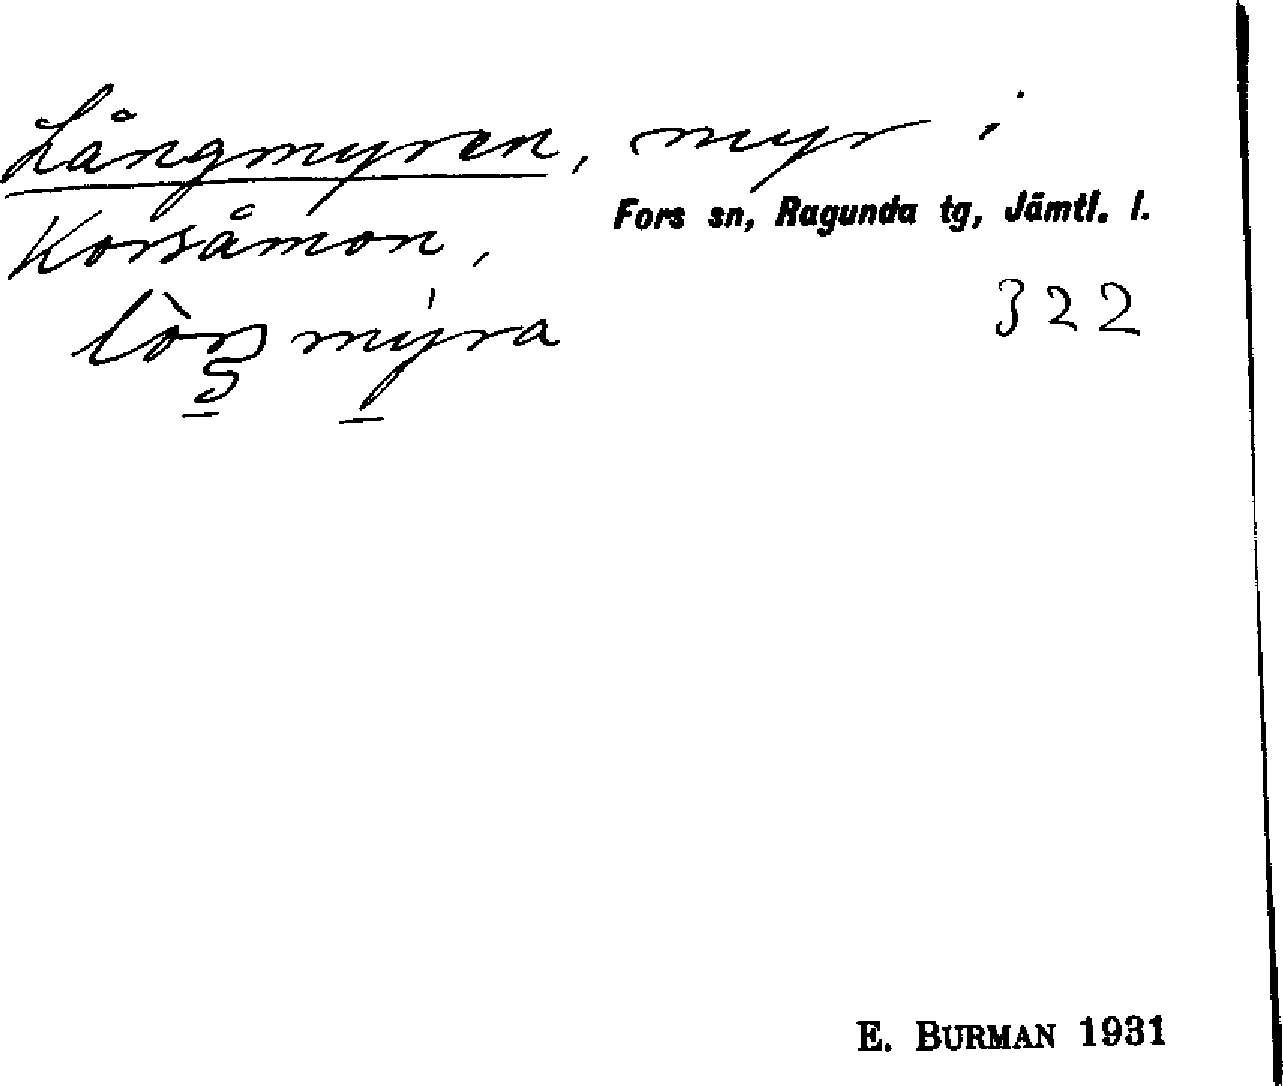 Långmyren, myr i
Korsåmon,
Fors sn, Ragunda tg, Jämtl. l.
322
E. BURMAN 1931